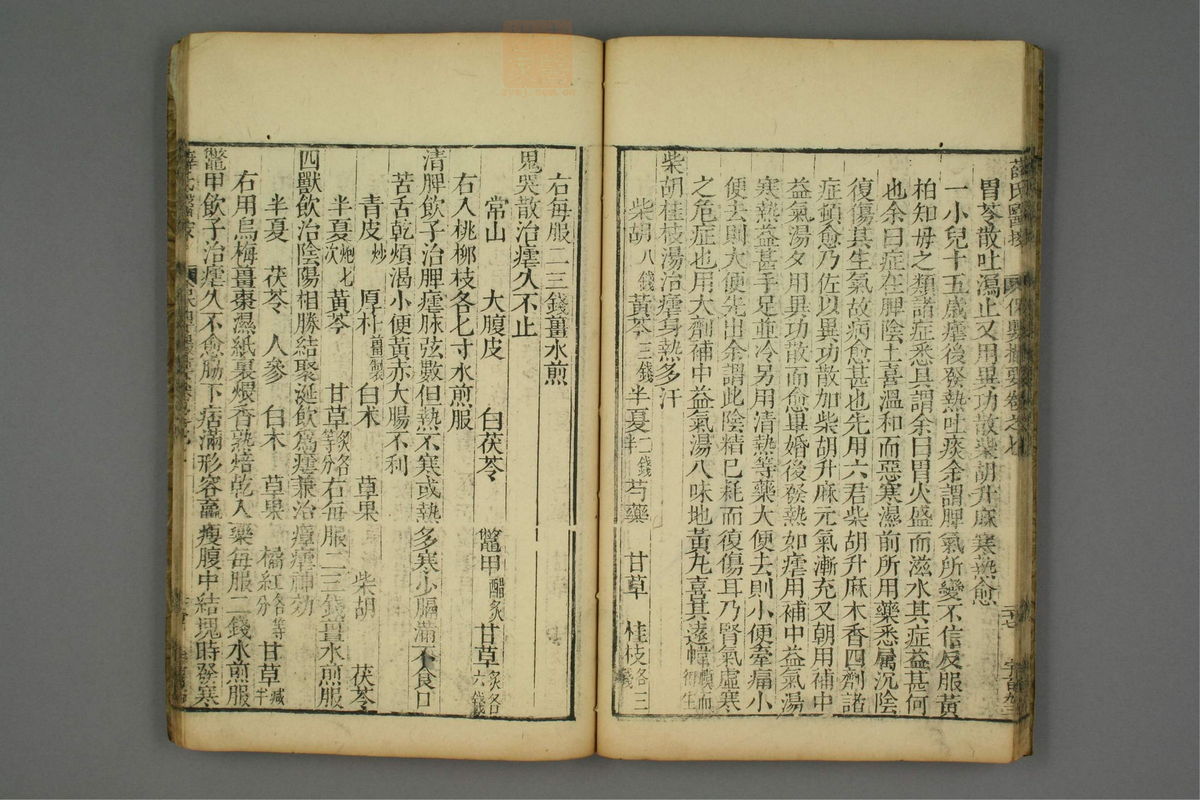 薛氏醫按 保嬰撮要卷之七
胃苓散吐瀉止又用異功散柴胡升麻寒熱愈
一小兒十五歲瘧後發熱吐痰余謂脾氣所變不信反服黃
柏知母之類諸症悉具謂余曰胃火盛而滋水其症益甚何
也余曰症在脾陰土喜溫和而惡寒濕前所用藥悉屬沉陰
復傷其生氣故病愈甚也先用六君柴胡升麻木香四劑諸
症頓愈乃佐以異功散加柴胡升麻元氣漸充又朝用補中
益氣湯夕用異功散而愈畢婚後發熱如瘧用補中益氣湯
寒熱益甚手足並冷另用清熱等藥大便去則小便牽痛小
便去則大便先出余謂此陰精已耗而復傷耳乃腎氣虛寒
之危症也用大劑補中益氣湯八味地黃丸喜其遠幃慎而得生
柴胡桂枝湯治瘧身熱多汗
柴胡八錢 黃芩三錢 半夏二錢半 芍藥 甘草 桂枝各三錢
右每服二三錢薑水煎
鬼哭散治瘧久不止
常山 大腹皮 白茯苓 鱉甲醋炙 甘草炙各六錢
右入桃柳枝各七寸水煎服
清脾飲子治脾瘧脉弦數但熱不寒或熱多寒少膈滿不食口
苦舌乾煩渴小便黃赤大腸不利
青皮炒 厚朴薑製 白术 草果 柴胡 茯苓
半夏炮七次 黃芩 甘草炙各等分 右每服二三錢薑水煎服
四獸飲治陰陽相勝結聚涎飲爲瘧兼治瘴瘧神効
半夏 茯苓 人參 白术 草果 橘紅各等分 甘草減半
右用烏梅薑棗濕紙裏煨香熟焙乾入藥每服二錢水煎服
鱉甲飲子治瘧久不愈脇下痞滿形容羸瘦腹中結塊時發寒
薛氏醫按